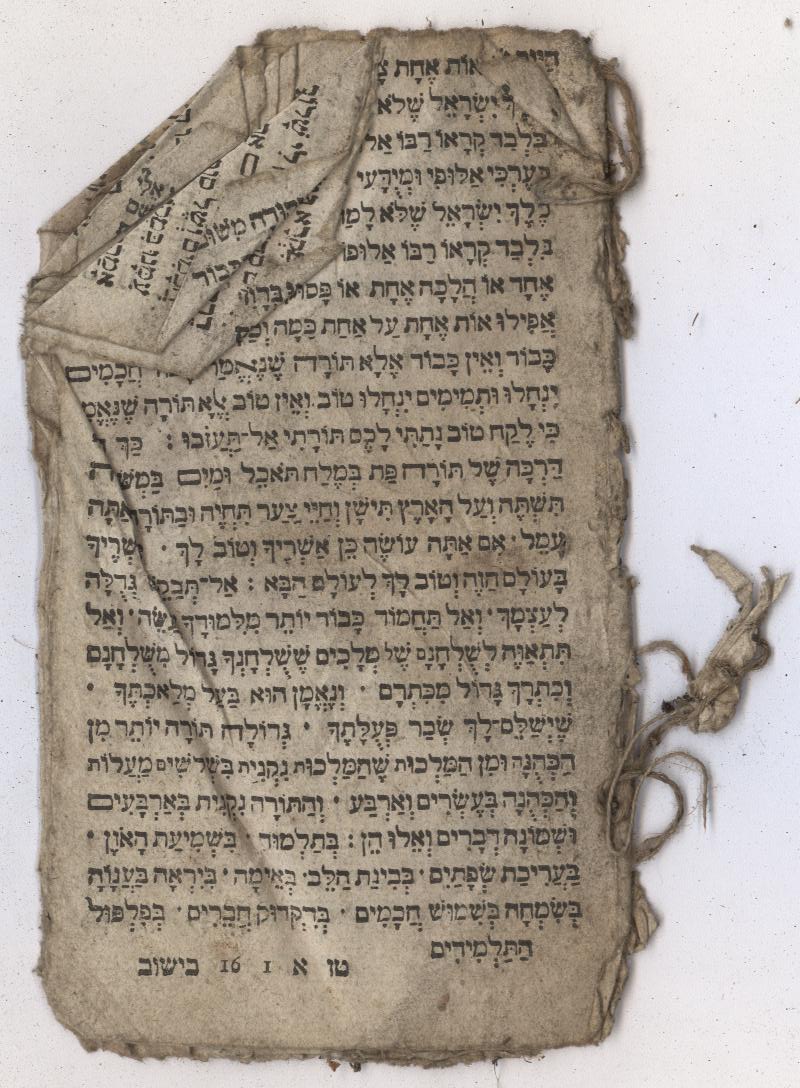 אוֹת אֶחָת
יִשְׂרָאֵל שֶׁלֹּא
בִּלְבַד קְרָאוֹ רַבּוֹ אַל
כְּעֶרְכִּי אַלּוּפִי וּמְיֻדָּעִי
מֶלֶךְ יִשְׂרָאֵל שֶׁלֹּא לָמַד
בִּלְבַד קְרָאוֹ רַבּוֹ אַלּוּפוֹ
אֶחָד אוֹ הֲלָכָה אֶחָת אוֹ פָּסוּק
אֲפִילוּ אוֹת אֶחָת עַל אַחַת כַּמָּה וְכַמָּ
כָּבוֹד וְאֵין כָּבוֹד אֶלָּא תּוֹרָה שֶׁנֶּאֱמַר חֲכָמִים
יִנְחָלוּ וּתְמִימִים יִנְחֲלוּ טוֹב וְאֵין טוֹב אֶלָּא תּוֹרָה שֶׁנֶּאֱמַ
כִּי לֶקַח טוֹב נָתַתִּי לָכֶם תּוֹרָתִי אַל־תַּעֲזֹבוּ : כַּךְ
דַּרְכָּהּ שֶׁל תּוֹרָה פַּת בְּמֶלַח תֹּאכֵל וּמַיִם בַּמְּשׂוּרָה
תִּשְׁתֶּה וְעַל הָאָרֶץ תִּישָׁן וְחַיֵּי צַעַר תִּחְיֶה וּבַתּוֹרָה אַתָּה
עָמֵל · אִם אַתָּה עוֹשֶׂה כֵּן אַשְׁרֶיךָ וְטוֹב לָךְ · אַשְׁרֶיךָ
בָּעוֹלָם הַזֶּה וְטוֹב לָךְ לָעוֹלָם הַבָּא : אַל־תְּבַקֵּשׁ גְּדֻלָּה
לְעַצְמָךְ · וְאַל תַּחְמוֹד כָּבוֹד יוֹתֵר מִלִּמּוּדְךָ עֲשֵׂה · וְאַל
תִּתְאַוֶּה לְשֻׁלְחָנָם שֶׁל מְלָכִים שֶׁשֻּׁלְחָנְךָ גָּדוֹל מִשֻּׁלְחָנָם
וְכִתְרָךְ גָּדוֹל מִכִּתְרָם · וְנֶאֱמָן הוּא בַּעַל מְלַאכְתֶּךָ ·
שֶׁיְּשַׁלֶּם־לָךְ שְׂכַר פְּעֻלָּתֶךָ · גְּדוֹלָה תּוֹרָה יוֹתֵר מִן
הַכְּהֻנָּה וּמִן הַמַּלְכוּת שֶׁהַמַּלְכוּת נִקְנֵית בִּשְׁלֹשִׁים מַעֲלוֹת
וְהַכְּהֻנָּה בְּעֶשְׂרִים וְאַרְבַּע · וְהַתּוֹרָה נִקְנֵית בְּאַרְבָּעִים
וּשְׁמוֹנָה דְּבָרִים וְאֵלּוּ הֵן : בְּתַלְמוּד · בִּשְׁמִיעַת הָאֹזֶן ·
בַּעֲרִיכַת שְׂפָתַיִם · בְּבִינַת הַלֵּב · בְּאֵימָה · בְּיִרְאָה בַּעֲנָוָה
בְּשִׂמְחָה בְּשִׁמּוּשׁ חֲכָמִים · בְּדִקְדּוּק חֲבֵרִים · בְּפִלְפּוּל
הַתַּלְמִידִים
טז א 1 16 בישוב